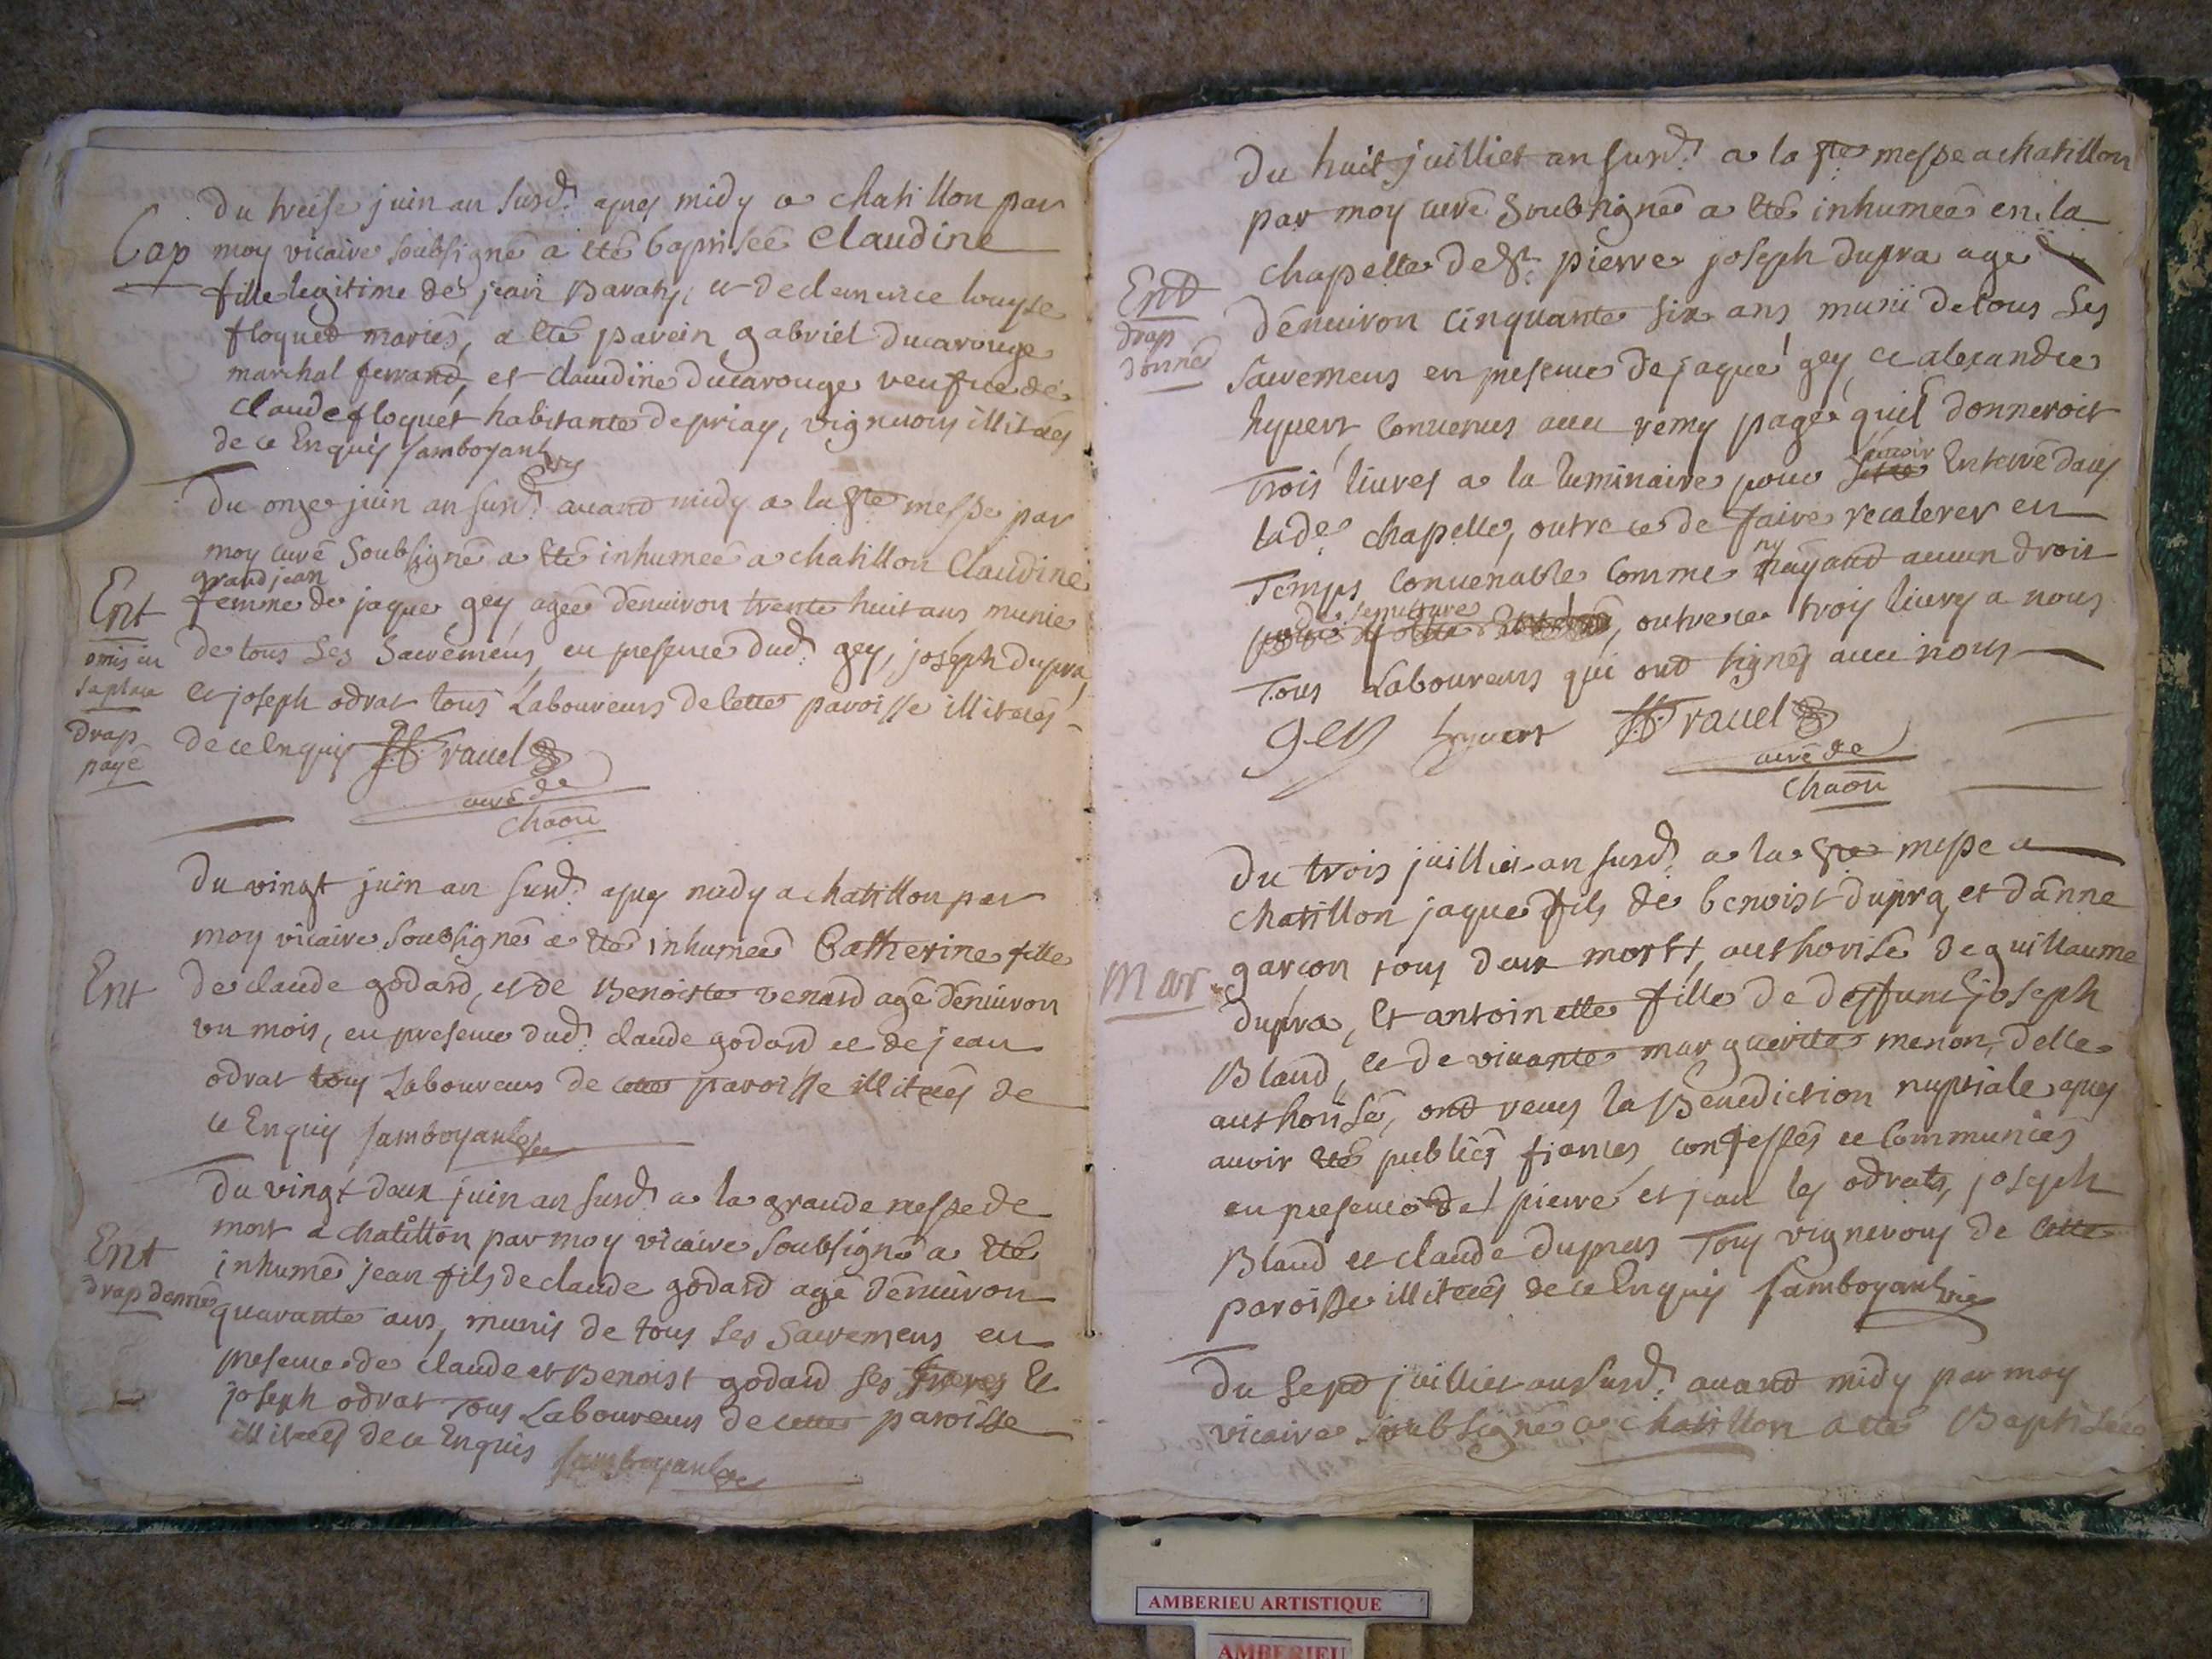 Du treise juin an susd. apres midy a chatillon par
Bap
moy vicaire soubsigné a eté baptiseé Claudine
fille legitime de jean Baraty, et de clemence louyse
floqued mariés, a eté parein gabriel ducarouge
marchal ferrand, et claudine ducarouge veufue de
claude floquet habitante de priay, vignerons illiterés
de ce Enquis Samboyant vic
Du onze juin an susd. auand midy a la Ste messe par
moy curé soubsigné a eté inhumeé a chatillon Claudine
grandjean
Ent
femme de jaque gey ageé d'enuiron trente huit ans munie
omis en
sa place
de tous ses Sacremens, en presence dud. gey, joseph dupra,
et joseph odrat tous Laboureurs de cette paroisse illiterés
drap
payé
de ce Enquis rauel
curé de
chaon
Du vingt juin an susd. apres midy a chatillon par
moy vicaire soubsigné a eté inhumeé Catherine fille
Ent
de claude godard, et de Benoiste venard agé d'enuiron
un mois, en presence dud. claude godard et de jean
odrat tous Laboureurs de cette paroisse illiterés de
ce Enquis Samboyant
Du vingt deux juin an susd. a la grande messe de
mort a chatillon par moy vicaire soubsigné a eté
Ent
drap donné
inhumé jean fils de claude godard agé d'enuiron
quarante ans, munis de tous ses Sacremens en
presence de claude et Benoist godard ses freres Et
joseph odrat Tous Laboureurs de cette paroisse
illiterés de ce Enquis Samboyant
Du huit juilliet an susd. a la Ste messe a chatillon
par moy curé Soubsigné a eté inhumeé en la
chapelle de St. pierre joseph dupra agé
End
drap
donné
d'enuiron cinquante six ans muni de tous ses
Sacremens en presence de jaque gey, et alexandre
hyuert, conuenus auec remy pagé qu'il donneroit
auoir
Trois liures a la luminaire pour Enterré dans
lade. chapelle, outre ce de faire recalerer en
ny
Temps conuenable comme n'ayand aucun droit
de sepulture
outre ce trois liures a nous
Tous Laboureurs qui ond signés auec nous
gey hyuert rauel
curé de
chaon
Du trois juilliet an susd. a la Ste messe a
chatillon jaque fils de benoist dupra, et d'anne
Mar.
garcon tous deux morts, authorisé de guillaume
dupra, Et antoinette fille de deffunt joseph
Bland, et de viuante marguerite menon, d'elle
authorisé, ond receu la Benediction nuptiale apres
auoir eté publiés fiances confessés et communiés
en presence de pierre et jean les odrats, joseph
Bland et claude dupras Tous vignerons de cette
paroisse illiterés de ce Enquis Samboyant vic
Du sept juilliet an susd. auand midy par moy
vicaire soubsigné a chatillon a eté Baptiseé
AMBERIEU ARTISTIQUE
AMBERIEU